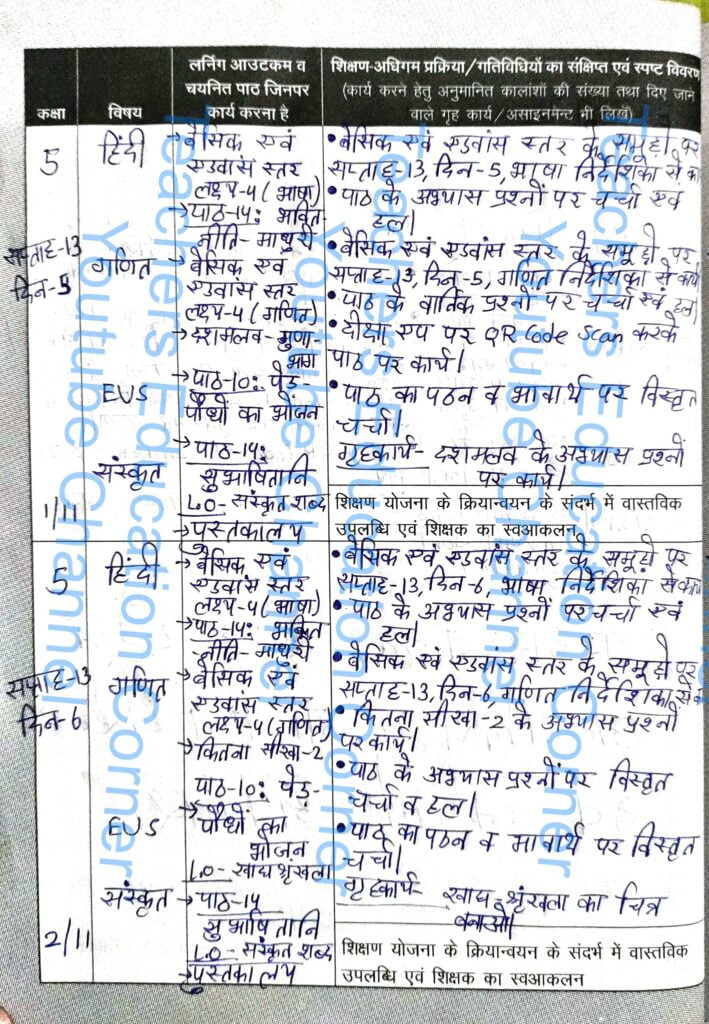 कक्षा
विषय
लर्निंग आउटकम व
चयनित पाठ जिनपर
कार्य करना है
शिक्षण-अधिगम प्रक्रिया/गतिविधियों का संक्षिप्त एवं स्पष्ट विवरण
(कार्य करने हेतु अनुमानित कालांशों की संख्या तथा दिए जाने
वाले गृह कार्य/असाइनमेन्ट भी लिखें)
5
सप्ताह-13
दिन-5
1/11
हिंदी
गणित
EVS
संस्कृत
→ बेसिक एवं
एडवांस स्तर
लक्ष्य-4 (भाषा)
→ पाठ-14: भक्ति-
नीति-माधुरी
→ बेसिक एवं
एडवांस स्तर
लक्ष्य-4 (गणित)
→ दशमलव-गुणा-
भाग
→ पाठ-10: पेड़-
पौधों का भोजन
→ पाठ-14:
सुभाषितानि
L.O- संस्कृत शब्द
→ पुस्तकालय
• बेसिक एवं एडवांस स्तर के समूहों पर
सप्ताह-13, दिन-5, भाषा निर्देशिका से
• पाठ के अभ्यास प्रश्नों पर चर्चा एवं
हल।
• बेसिक एवं एडवांस स्तर के समूहों पर
सप्ताह-13, दिन-5, गणित निर्देशिका से कार्य
• पाठ के वार्तिक प्रश्नों पर चर्चा एवं हल।
• दीक्षा एप पर QR Code Scan करके
पाठ पर कार्य।
• पाठ का पठन व भावार्थ पर विस्तृत
चर्चा।
गृहकार्य- दशमलव के अभ्यास प्रश्नों
पर कार्य।
शिक्षण योजना के क्रियान्वयन के संदर्भ में वास्तविक
उपलब्धि एवं शिक्षक का स्वआकलन
5
सप्ताह-13
दिन-6
2/11
हिंदी
गणित
EVS
संस्कृत
→ बेसिक एवं
एडवांस स्तर
लक्ष्य-4 (भाषा)
→ पाठ-14: भक्ति
-नीति-माधुरी
→ बेसिक एवं
एडवांस स्तर
लक्ष्य-4 (गणित)
→ कितना सीखा-2
पाठ-10: पेड़-
→ पौधों का
भोजन
L.O- खाद्य श्रृंखला
→ पाठ-14
सुभाषितानि
L.O- संस्कृत शब्द
→ पुस्तकालय
• बेसिक एवं एडवांस स्तर के समूहों पर
सप्ताह-13, दिन-6, भाषा निर्देशिका से कार्य
• पाठ के अभ्यास प्रश्नों पर चर्चा एवं
हल।
• बेसिक एवं एडवांस स्तर के समूहों पर
सप्ताह-13, दिन-6, गणित निर्देशिका से
• कितना सीखा-2 के अभ्यास प्रश्नों
पर कार्य।
• पाठ के अभ्यास प्रश्नों पर विस्तृत
चर्चा व हल।
• पाठ का पठन व भावार्थ पर विस्तृत
चर्चा।
गृहकार्य- खाद्य श्रृंखला का चित्र
बनाओ।
शिक्षण योजना के क्रियान्वयन के संदर्भ में वास्तविक
उपलब्धि एवं शिक्षक का स्वआकलन
Teachers Education Corner
Youtube Channel
Teachers Education Corner
Youtube Channel
Teachers Education Corner
Youtube Channel